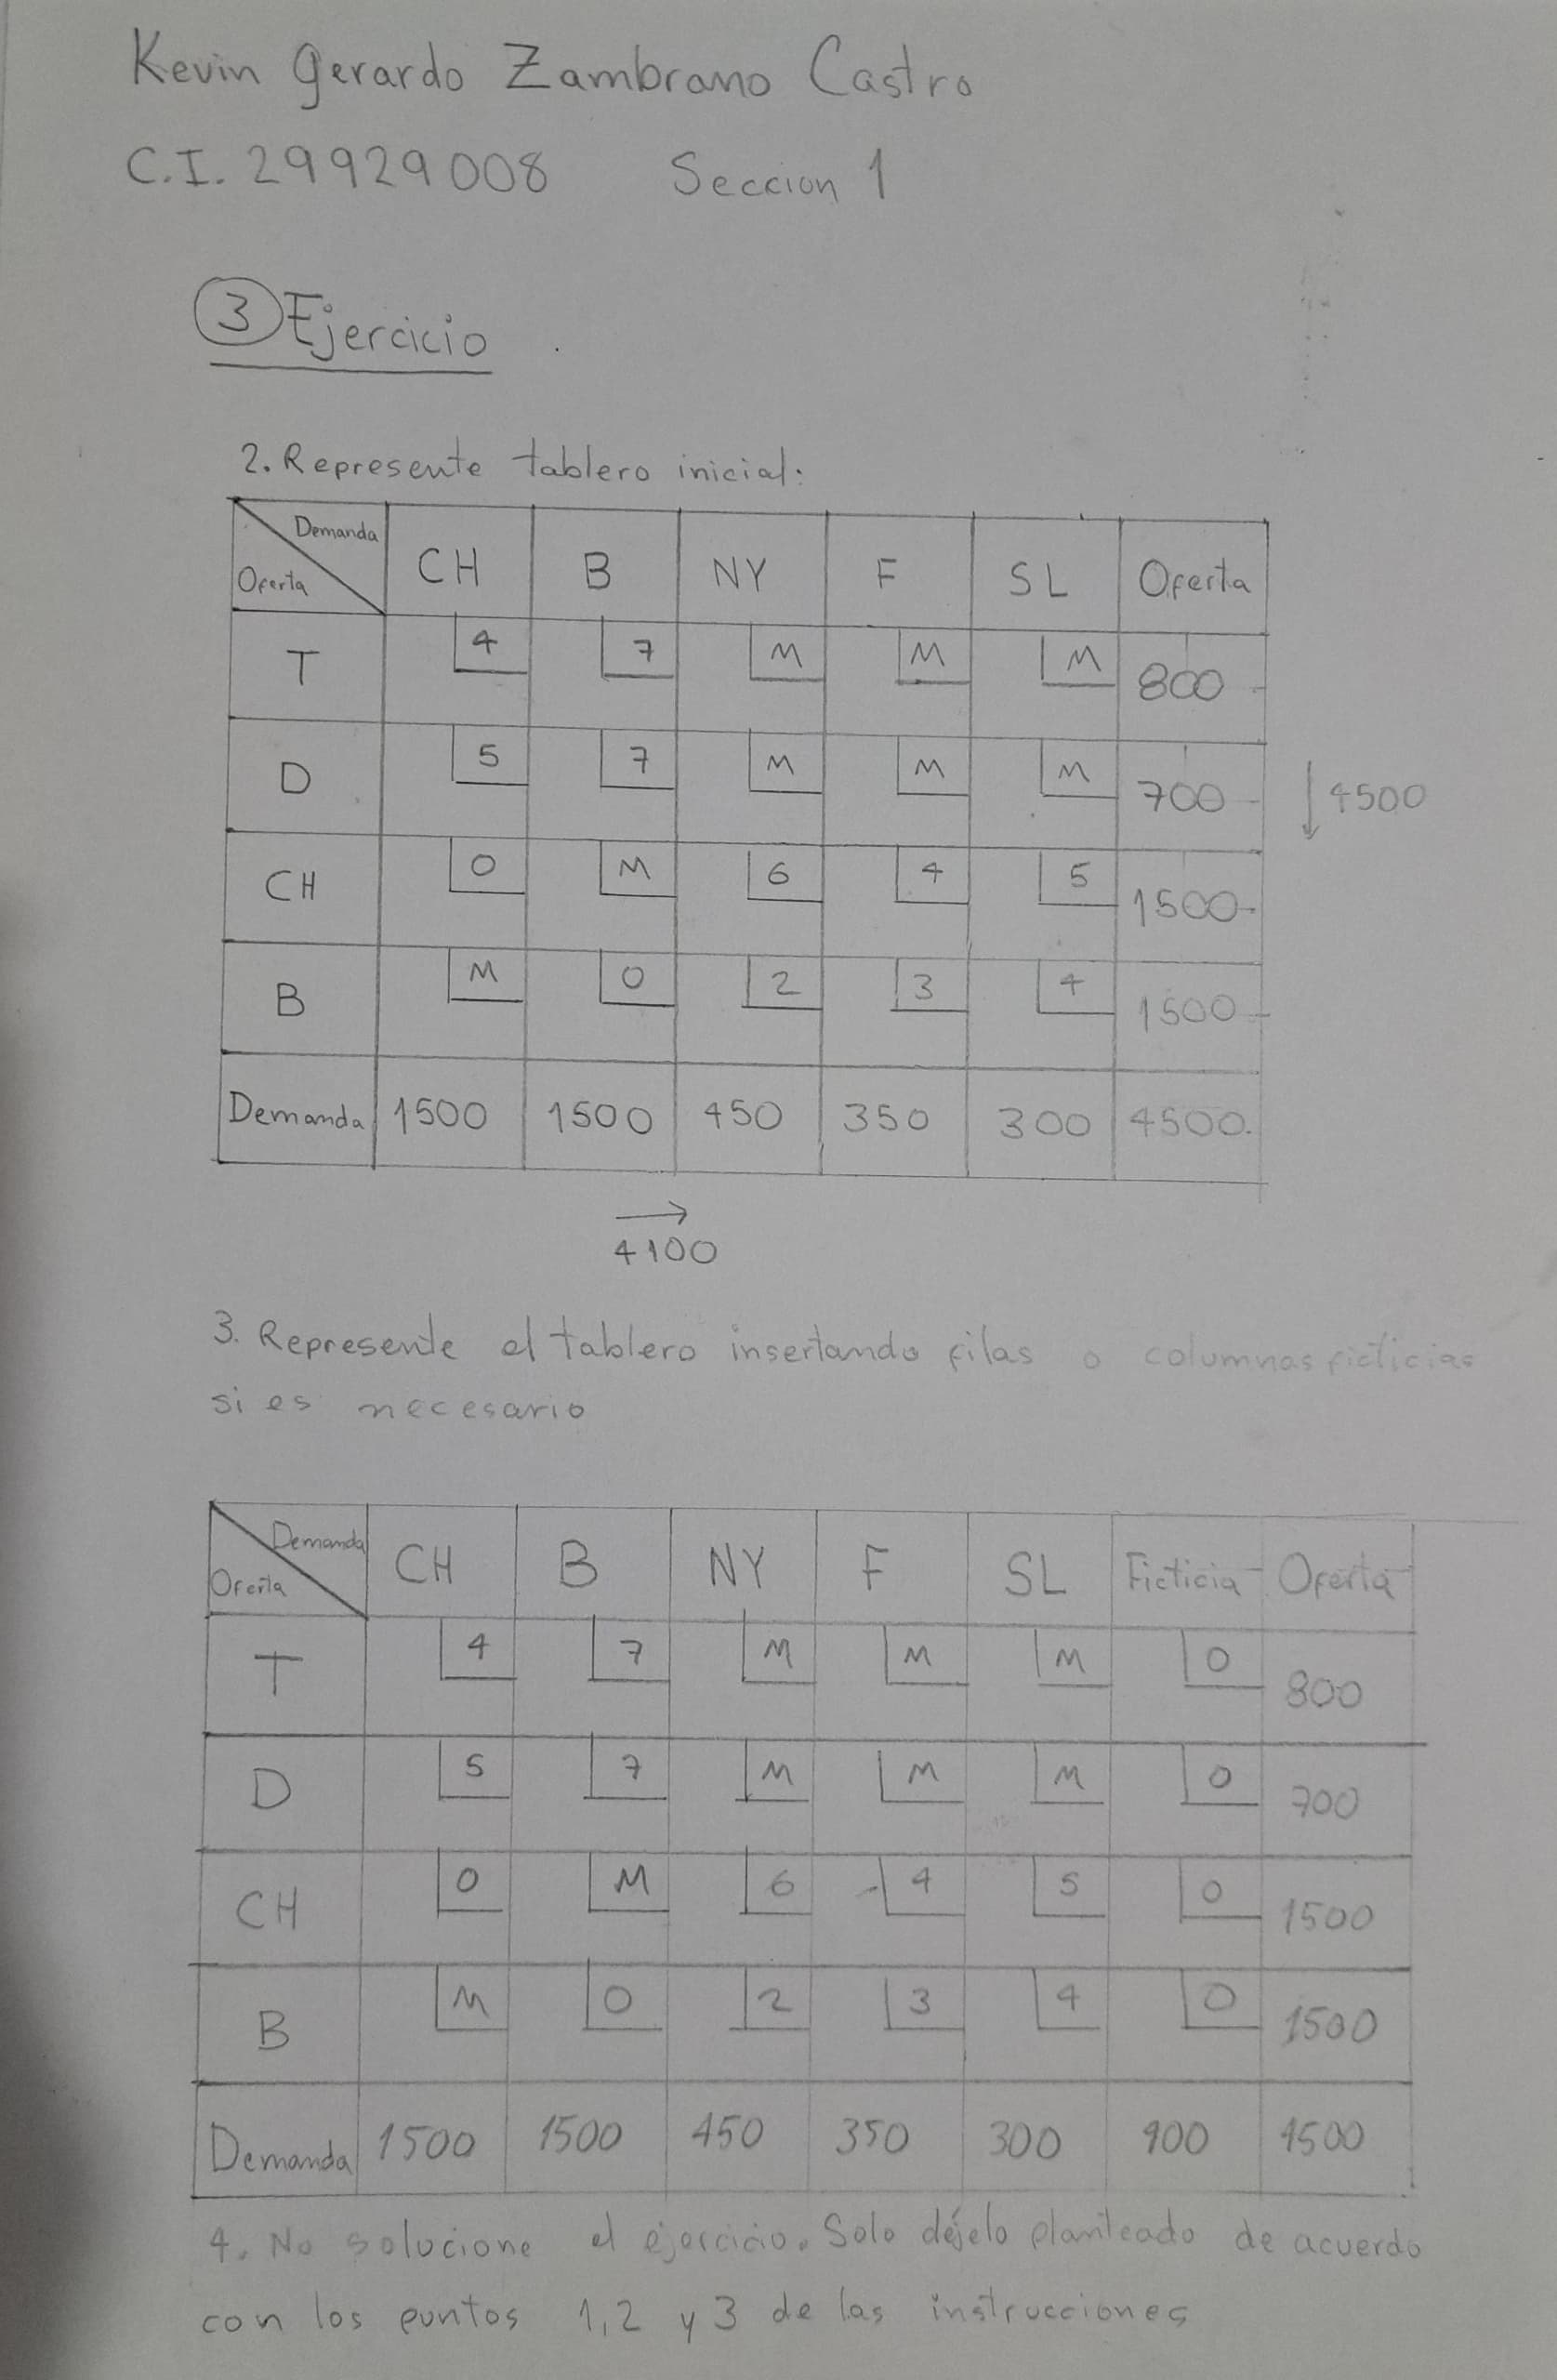 Kevin Gerardo Zambrano Castro
C.I. 29929008 Seccion 1
3 Ejercicio
2. Represente tablero inicial:
Demanda Oferta CH B NY F SL Oferta
T 4 7 M M M 800
D 5 7 M M M 700 ↓ 4500
CH 0 M 6 4 5 1500
B M 0 2 3 4 1500
Demanda 1500 1500 450 350 300 4500
→
4100
3. Represente el tablero insertando filas o columnas ficticias
si es necesario
Demanda Oferta CH B NY F SL Ficticia Oferta
T 4 7 M M M 0 800
D 5 7 M M M 0 700
CH 0 M 6 4 5 0 1500
B M 0 2 3 4 0 1500
Demanda 1500 1500 450 350 300 400 4500
4. No solucione el ejercicio. Solo déjelo planteado de acuerdo
con los puntos 1,2 y 3 de las instrucciones